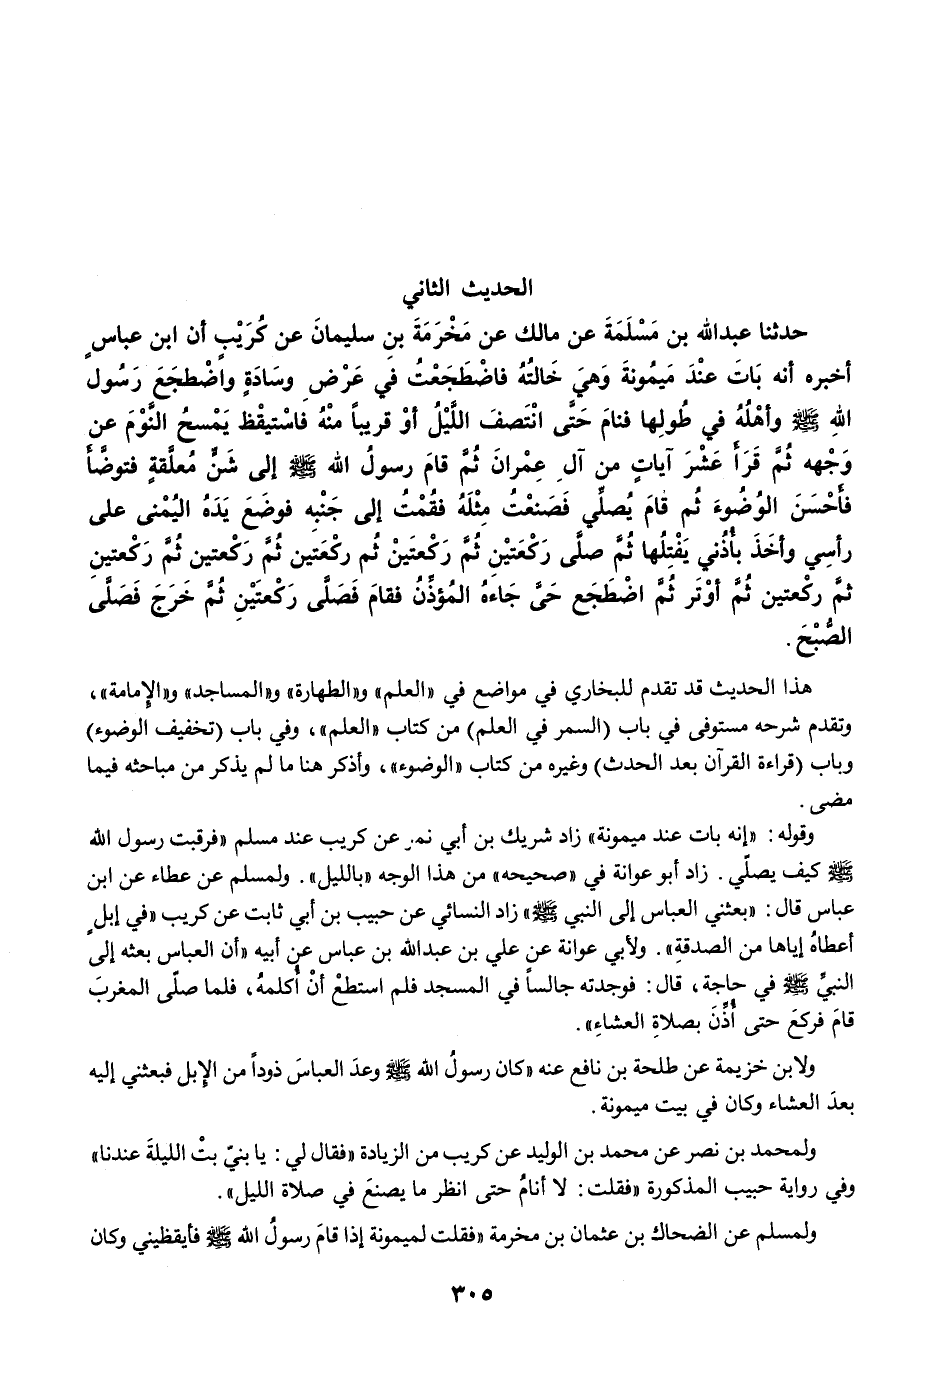 الحديث الثاني
حدثنا عبدالله بن مَسْلَمَةَ عن مالك عن مَخْرَمَةَ بنِ سليمانَ عن كُرَيْبٍ أن ابن عباسٍ
أخبره أنه بَاتَ عنْدَ مَيمُونةَ وَهيَ خَالتُهُ فاضْطَجَعْتُ في عَرْضِ وسَادَةٍ واضْطجَعَ رَسُول
اللهِ ﷺ وأهْلُهُ في طُولِها فنامَ حَتَّى انْتَصفَ اللَّيْلُ أوْ قريباً منْهُ فاسْتيقْظ يَمْسحُ النَّوْمَ عن
وَجْهه ثُمَّ قَرَأَ عَشْرَ آياتٍ من آلِ عِمْرانَ ثُمَّ قامَ رسولُ الله ﷺ إلى شَنٍّ مُعلَّقةٍ فتوضَّأَ
فأَحْسَنَ الوُضُوءَ ثم قامَ يُصلِّي فَصَنعْتُ مِثْلَهُ فقُمْتُ إلى جَنْبِه فوضَعَ يَدَهُ اليُمْنى على
رأسِي وأخَذَ بأُذُني يَفْتِلُها ثُمَّ صلَّى رَكَعَتَيْن ثُمَّ رَكْعَتَيَنْ ثُم ركْعَتين ثُمَّ رَكْعتين ثُمَّ رَكْعتينِ
ثمَّ ركْعتين ثُمَّ أوْتَر ثُمَّ اضْطَجَع حَىَّ جَاءهُ المُؤذِّنُ فقامَ فَصَلَّى رَكْعتَيْنِ ثُمَّ خَرَجَ فَصَلَّى
الصُّبْحَ.
هذا الحديث قد تقدم للبخاري في مواضع في «العلم» و«الطهارة» و«المساجد» و«الإِمامة»،
وتقدم شرحه مستوفى في باب (السمر في العلم) من كتاب «العلم»، وفي باب (تخفيف الوضوء)
وباب (قراءة القرآن بعد الحدث) وغيره من كتاب «الوضوء»، وأذكر هنا ما لم يذكر من مباحثه فيما
مضى.
وقوله: «إنه بات عند ميمونة» زاد شريك بن أبي نمر عن كريب عند مسلم «فرقبت رسول الله
ﷺ كيف يصلّي. زاد أبو عوانة في «صحيحه» من هذا الوجه «بالليل». ولمسلم عن عطاء عن ابن
عباس قال: «بعثني العباس إلى النبي ﷺ» زاد النسائي عن حبيب بن أبي ثابت عن كريب «في إبلٍ
أعطاهُ إياها من الصدقةِ». ولأبي عوانة عن علي بن عبدالله بن عباس عن أبيه «أن العباس بعثه إلى
النبيِّ ﷺ في حاجة، قال: فوجدته جالساً في المسجد فلم استطعْ أنْ أُكلمهُ، فلما صلّى المغربَ
قامَ فركعَ حتى أُذِّنَ بصلاةِ العشاءِ».
ولابن خزيمة عن طلحة بن نافع عنه «كان رسولُ الله ﷺ وعدَ العباسَ ذوداً من الإِبل فبعثني إليه
بعدَ العشاء وكان في بيت ميمونة.
ولمحمد بن نصر عن محمد بن الوليد عن كريب من الزيادة «فقال لي: يا بنيّ بتْ الليلةَ عندنا»
وفي رواية حبيب المذكورة «فقلت: لا أنامُ حتى انظر ما يصنعَ في صلاة الليل».
ولمسلم عن الضحاك بن عثمان بن مخرمة «فقلت لميمونة إذا قامَ رسولُ الله ﷺ فأيقظيني وكان
٣٠٥